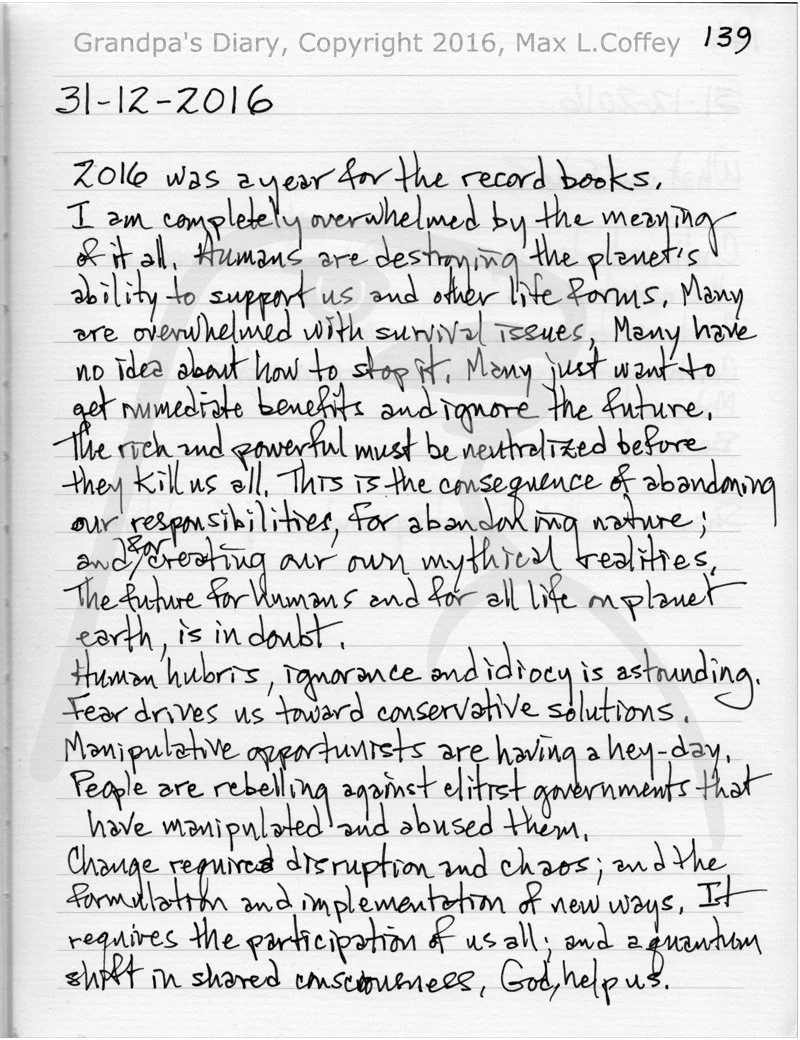 Grandpa's Diary, Copyright 2016, Max L.Coffey 139
31-12-2016
2016 was a year for the record books.
I am completely overwhelmed by the meaning
of it all. Humans are destroying the planet's
ability to support us and other life forms. Many
are overwhelmed with survival issues, Many have
no idea about how to stop it. Many just want to
get immediate benefits and ignore the future.
The rich and powerful must be neutralized before
they kill us all. This is the consequence of abandoning
our responsibilities, for abandoning nature;
and for creating our own mythical realities.
The future for humans and for all life on planet
earth, is in doubt.
Human hubris, ignorance and idiocy is astounding.
Fear drives us toward conservative solutions.
Manipulative opportunists are having a hey-day.
People are rebelling against elitist governments that
have manipulated and abused them.
Change requires disruption and chaos; and the
formulation and implementation of new ways. It
requires the participation of us all; and a quantum
shift in shared consciousness, God, help us.